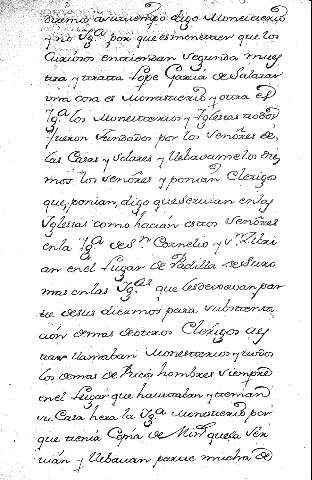 diximo a su tiempo digo Monesterio
y no Igª. porque es menester que los
Curiosos entiendan segunda mues
tra y trata Lope Garcia de Salazar
una cosa es Monasterio y otra es
Igª. los Monesterios y Iglesias todos
fueron fundados por los señores de
las Casas y Solares y llebavan los diez
mos los señores y ponian Clerigos
que, ponian, digo que servian en las
Iglesias como hacian estos señores
en la Igª de Sn. Cornelio y Sn.
an en el Lugar de Padilla de Suso
mas en las Igas que les devavan par
te de sus diezmos para substenta
ción demas de otros Clerigos es
tas llamaban Monesterios y todos
los demas de Ricos hombres siempre
en el Lugar que havitaban y tenian
su Casa hera la Igª Monesterio por
que tenia Copia de Minros que la ser
uián y llebauan parte mucha de